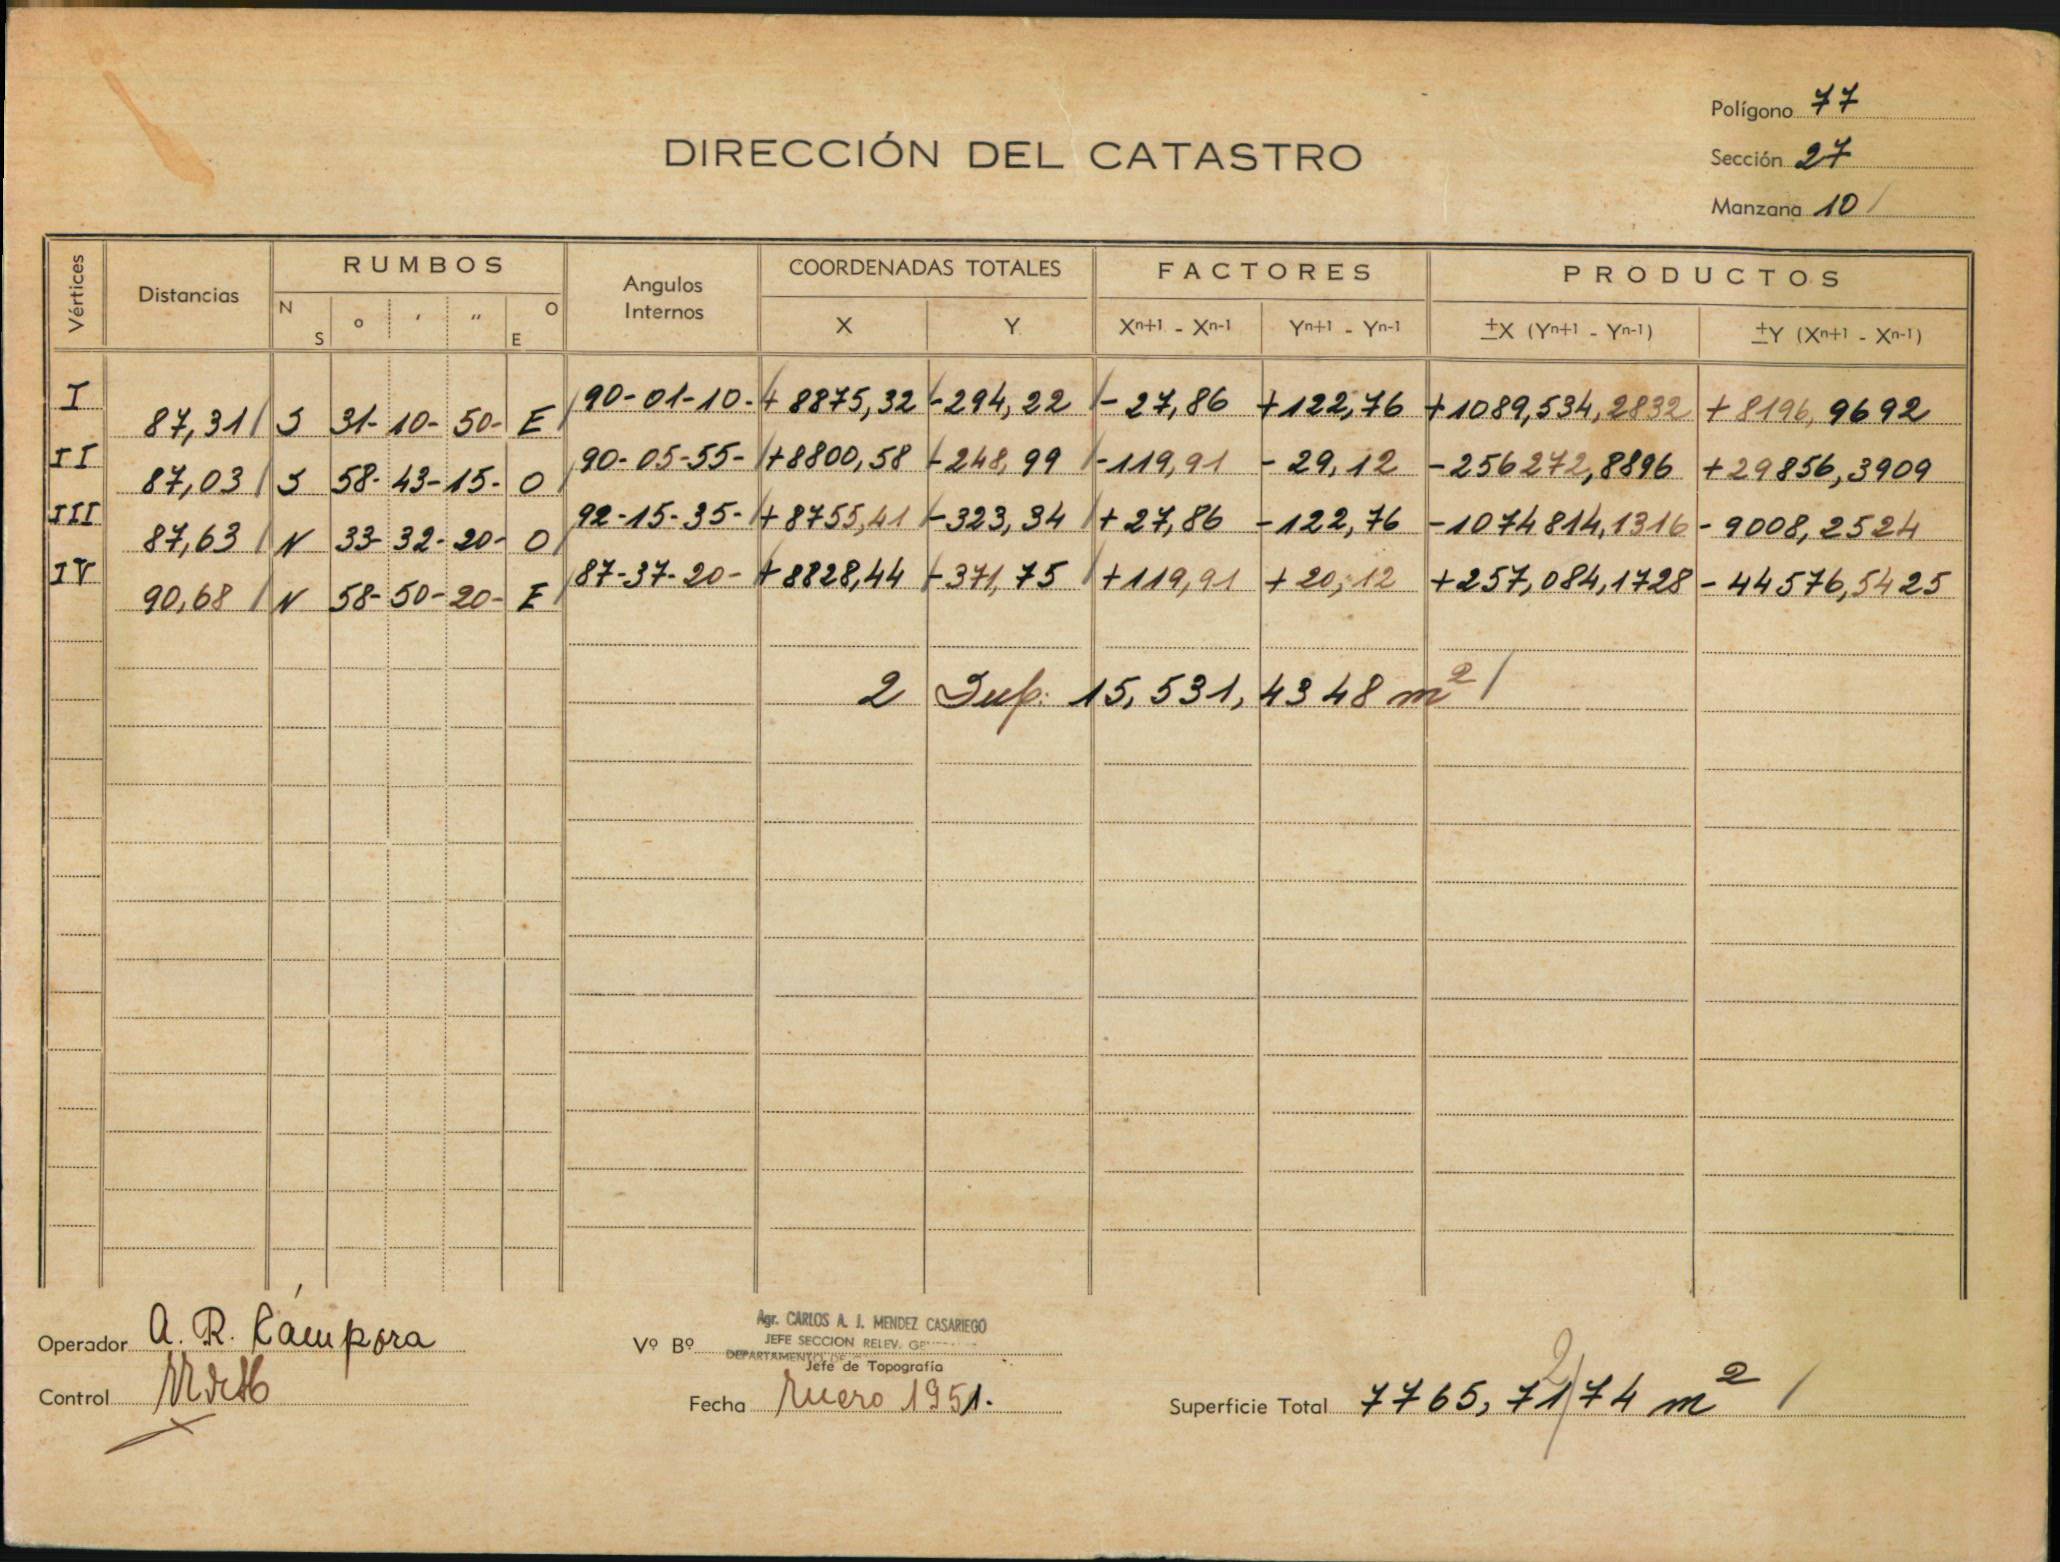 Polígono 77
DIRECCIÓN DEL CATASTRO
Sección 27
Manzana 10 /
Vértices Distancias RUMBOS Angulos Internos COORDENADAS TOTALES FACTORES PRODUCTOS
N S o ' " O E X Y Xn+1 - Xn-1 Yn+1 - Yn-1 ±X (Yn+1 - Yn-1) ±Y (Xn+1 - Xn-1)
I 90-01-10- + 8875,32 -294,22 - 27,86 +122,76 +1089,534,2832 + 8196,9692
87,31 / S 31- 10- 50- E
II 90-05-55- +8800,58 -248,99 -119,91 - 29,12 -256272,8896 +29856,3909
87,03 / S 58- 43- 15- O
III 92-15-35- + 8755,41 -323,34 + 27,86 -122,76 -1074814,1316 - 9008,2524
87,63 / N 33- 32- 20- O
IV 87-37-20- + 8828,44 -371,75 +119,91 + 20,12 +257,084,1728 - 44576,5425
90,68 / N 58- 50- 20- E
2 Sup: 15,531,4348 m2 /
Operador A. R. Cámpora
Vº Bº Agr. CARLOS A. J. MENDEZ CASARIEGO
JEFE SECCION RELEV.
DEPARTAMENTO
Jefe de Topografía
Control
Fecha Enero 1951.
Superficie Total 7765,7174 m2 /
2